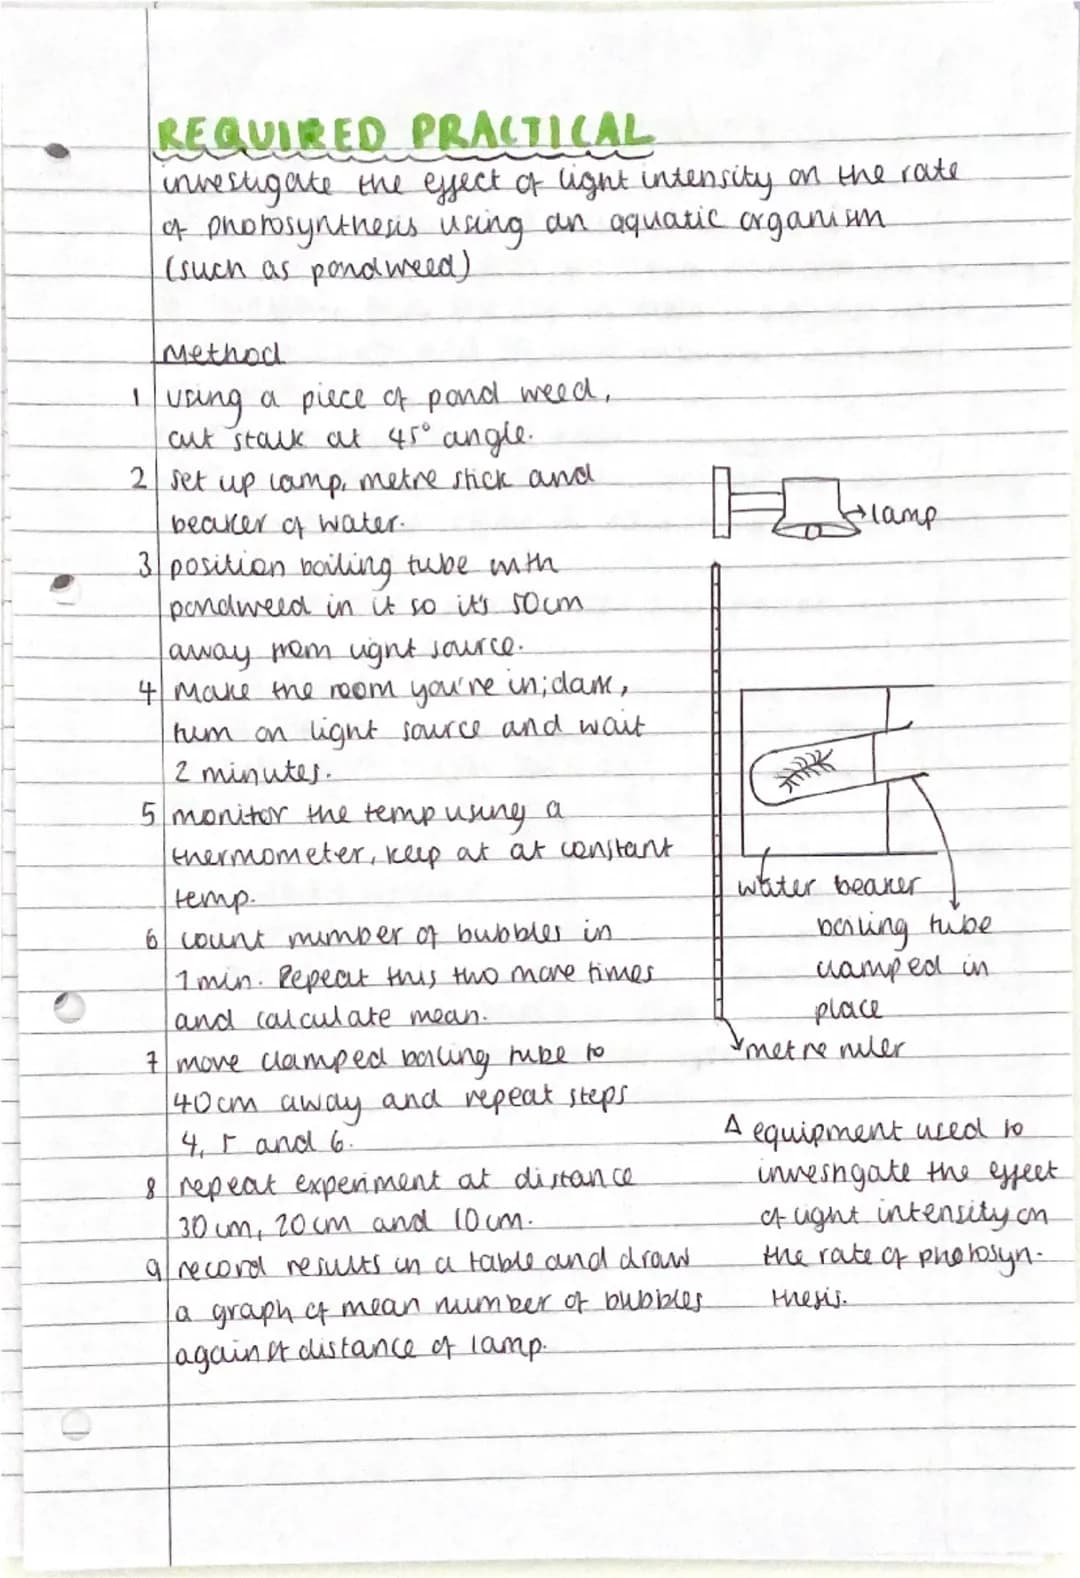 REQUIRED PRACTICAL
investigate the effect of light intensity on the rate
of photosynthesis using an aquatic organism
(such as pondweed)
Method
1 using a piece of pond weed,
cut stalk at 45° angle.
2 set up lamp, metre stick and
beaker of water.
3 position boiling tube with
pondweed in it so it's 50cm
away from light source.
4 Make the room you're in; dark,
turn on light source and wait
2 minutes.
5 monitor the temp using a
thermometer, keep at at constant
temp.
6 count number of bubbles in
1 min. Repeat this two more times
and calculate mean.
7 move clamped boiling tube to
40cm away and repeat steps
4, 5 and 6.
8 repeat experiment at distance
30cm, 20cm and 10cm.
9 record results in a table and draw
a graph of mean number of bubbles
against distance of lamp.
lamp
water beaker
boiling tube
clamped in
place
metre ruler
Δ equipment used to
investigate the effect
of light intensity on
the rate of photosyn-
thesis.